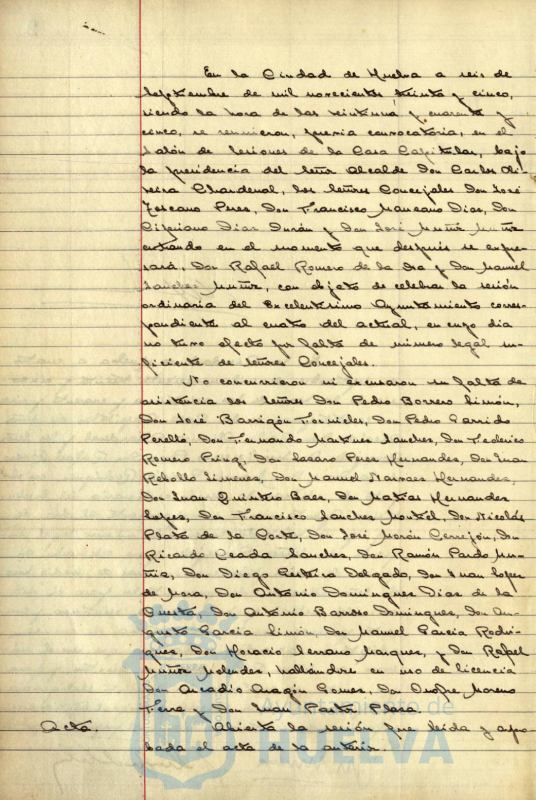 En la Ciudad de Huelva a seis de
Septiembre de mil novecientos treinta y cinco,
siendo la hora de las veintiuna y cuarenta y
cinco, se reunieron, previa convocatoria, en el
Salón de Sesiones de la Casa Capitular, bajo
la presidencia del Señor Alcalde Don Carlos Oli-
veira Chardenal, los Señores Concejales Don José
Toscano Perez, Don Francisco Manzano Dias, Don
Cipriano Dias Durán y Don José Muñiz Muñiz
entrando en el momento que después se expre-
sará, Don Rafael Romero de la Osa y Don Manuel
Sanchez Muñiz, con objeto de celebrar la sesión
ordinaria del Excelentísimo Ayuntamiento corres-
pondiente al cuatro del actual, en cuyo dia
no tuvo efecto por falta de número legal su-
ficiente de Señores Concejales.
No concurrieron ni excusaron su falta de
asistencia los Señores Don Pedro Borrero Limón,
Don José Barrigón Fornieles, Don Pedro Garrido
Perelló, Don Fernando Martinez Sanches, Don Federico
Romero Don Lazaro Perez Hernandes, Don Juan
Rebollo Jimenes, Don Manuel Narvaes Hernandes,
Don Juan Quintero Baes, Don Matias Hernandes
Lopes, Don Francisco Sanches Don Nicolás
Plata de la Corte, Don José Morón Cerrejón, Don
Ricardo Ceada Sanches, Don Ramón Pardo Mu-
ñis, Don Diego Delgado, Don Juan Lopes
de Mora, Don Antonio Domingues Dias de la
Cuesta, Don Antonio Barroso Domingues, Don Au-
gusto Garcia Limón, Don Manuel Garcia Rodri-
gues, Don Horacio Serrano Marques, y Don Rafael
Muñiz Melendes, hallándose en uso de licencia
Don Arcadio Aragón Gomes, Don Onofre Moreno
y Don Juan Pastor Plaza.
Acta. Abierta la sesión fue leida y apro-
bada el acta de la anterior.
Ayuntamiento de
HUELVA